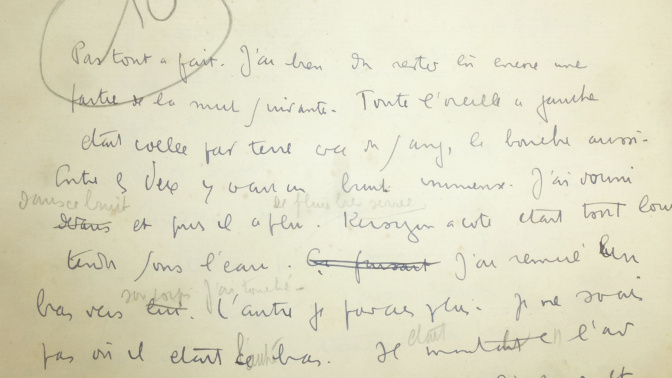 10
Pas tout à fait. J'ai bien dû rester là encore une
partie de la nuit suivante. Toute l'oreille à gauche
était collée par terre avec du sang, la bouche aussi.
Entre les deux y avait un bruit immense. J'ai dormi
dans ce bruit
et puis il a plu, de pluie bien serrée
. Kersuzon à côté était tout lour
tendu sous l'eau. J'ai remué un
bras vers son corps. J'ai touché.
L'autre je pouvais plus. Je ne savais
pas où il était l'autre bras. Il était